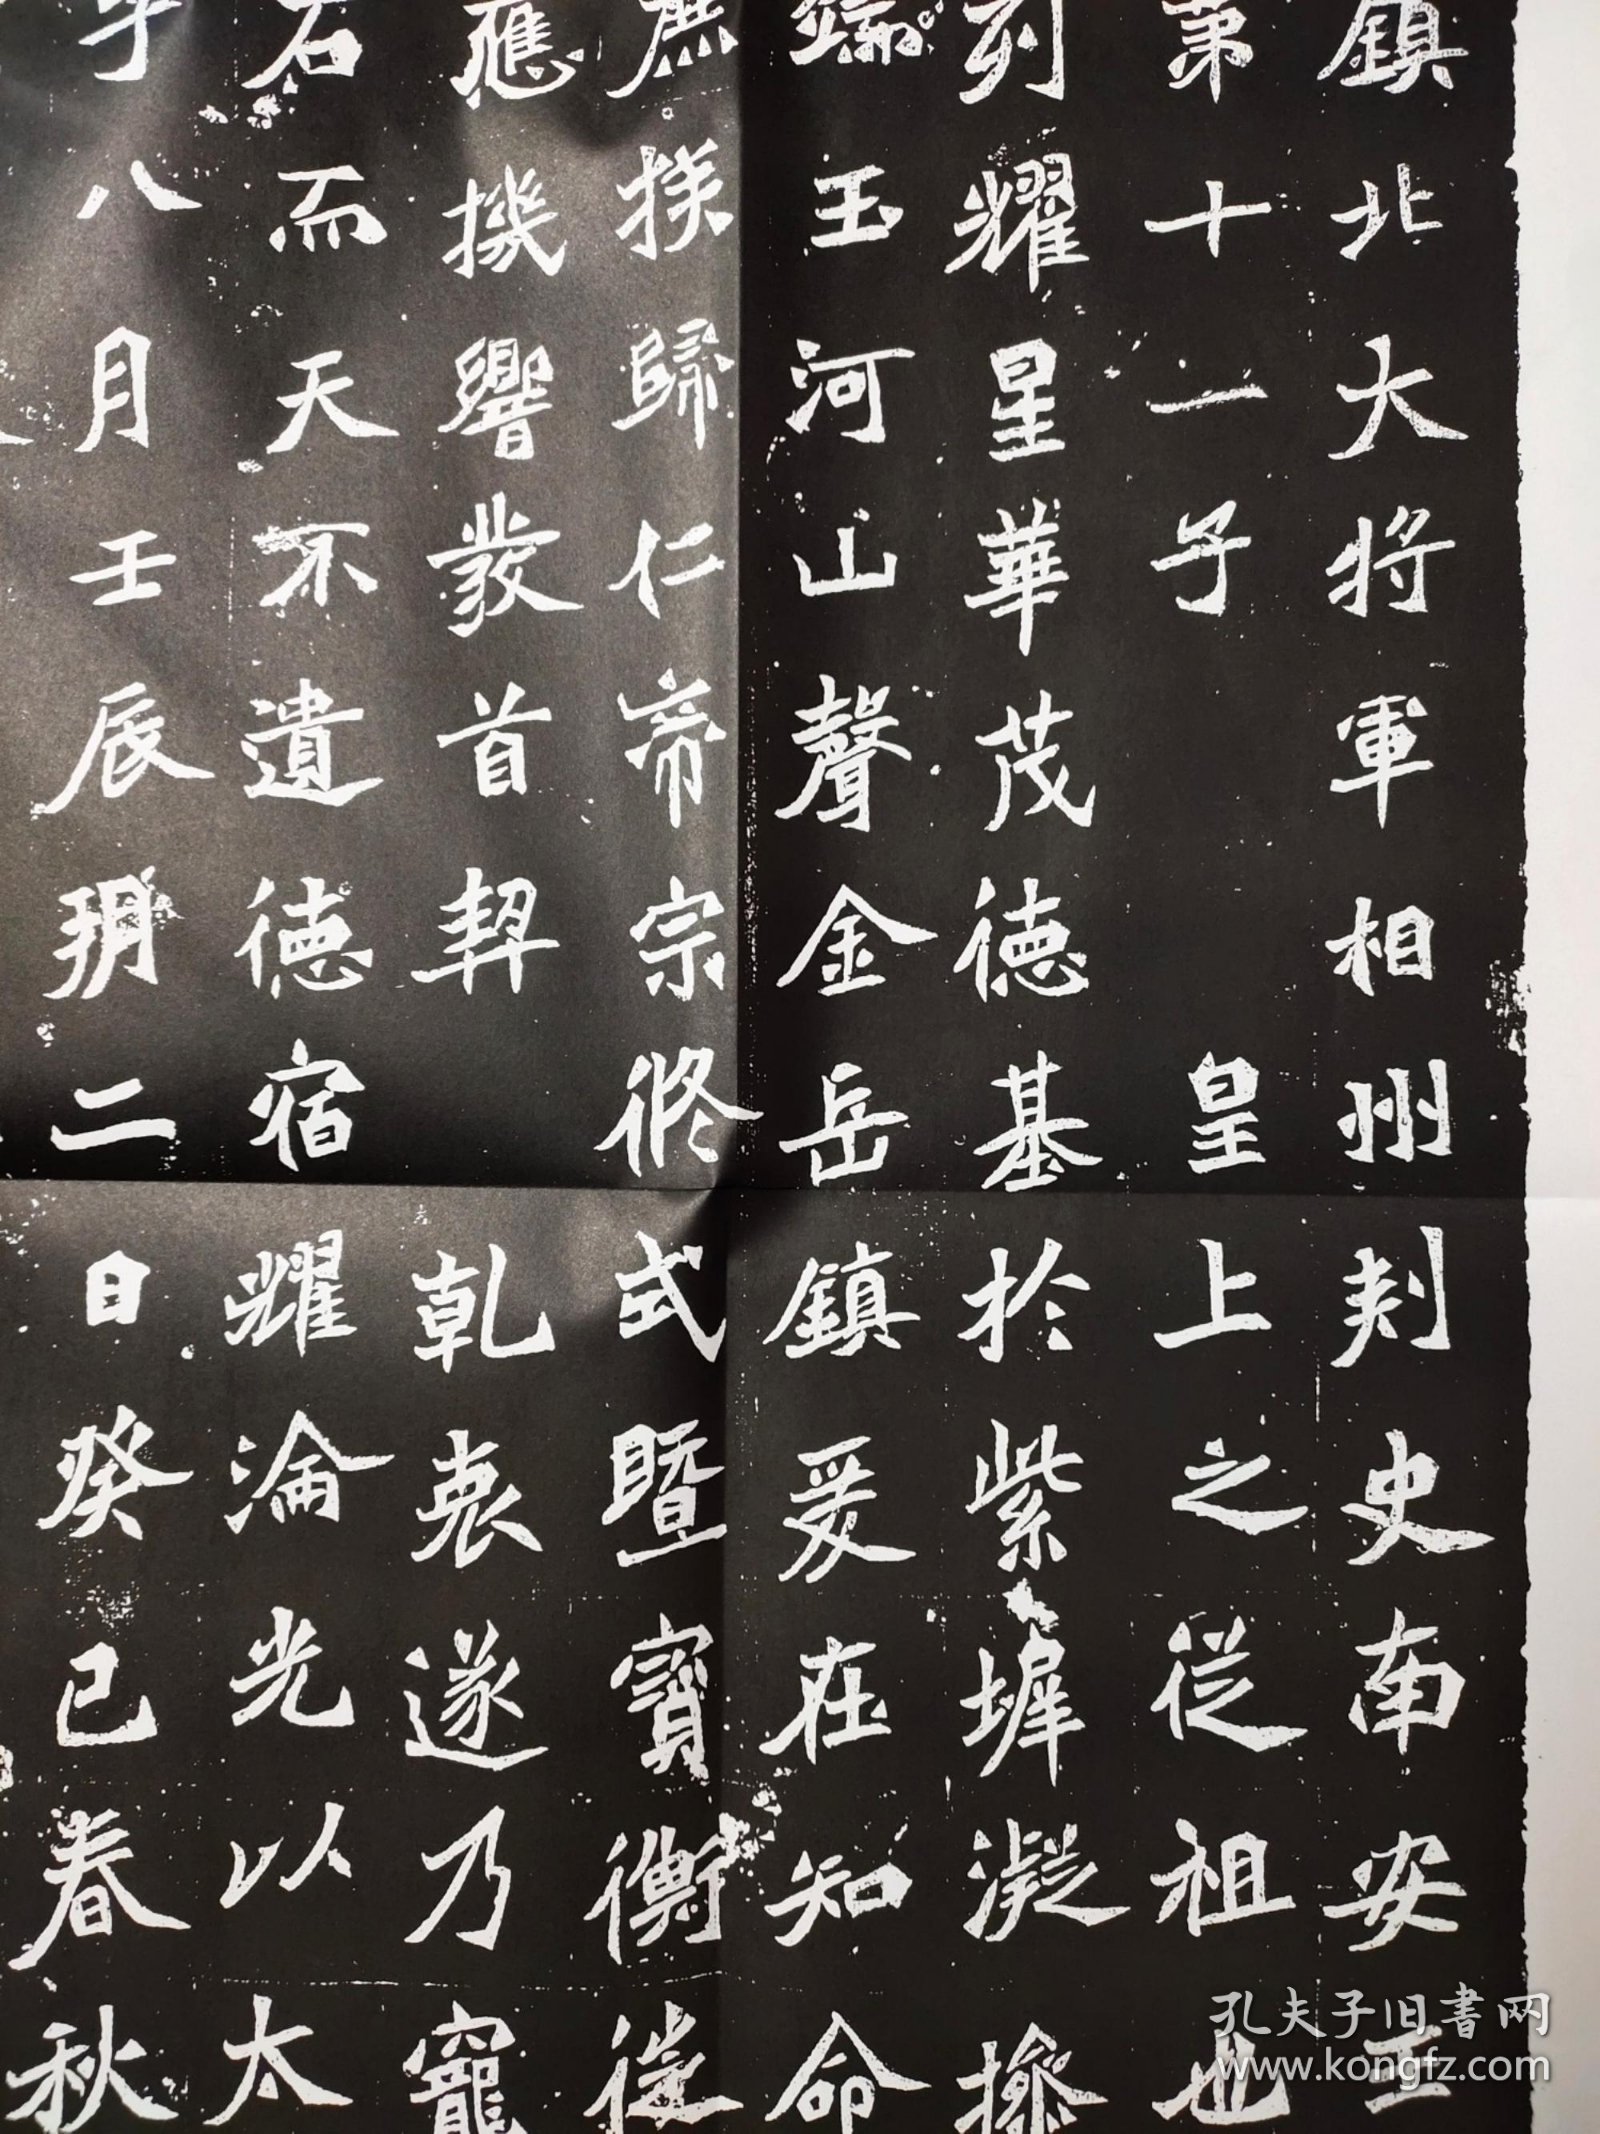 鎮北大将軍相州刾史南安王
苐十一子皇上之從祖也
列耀星華茂德基於紫墀凝操
玉河山聲金岳鎮爰在知命
庶揆歸仁帝宗攸式暨寳衡徙
應機響發首契乾衷遂乃寵
石而天不遺德宿耀淪光以太
八月壬辰朔二日癸巳春秋
孔夫子旧書网
www.kongfz.com